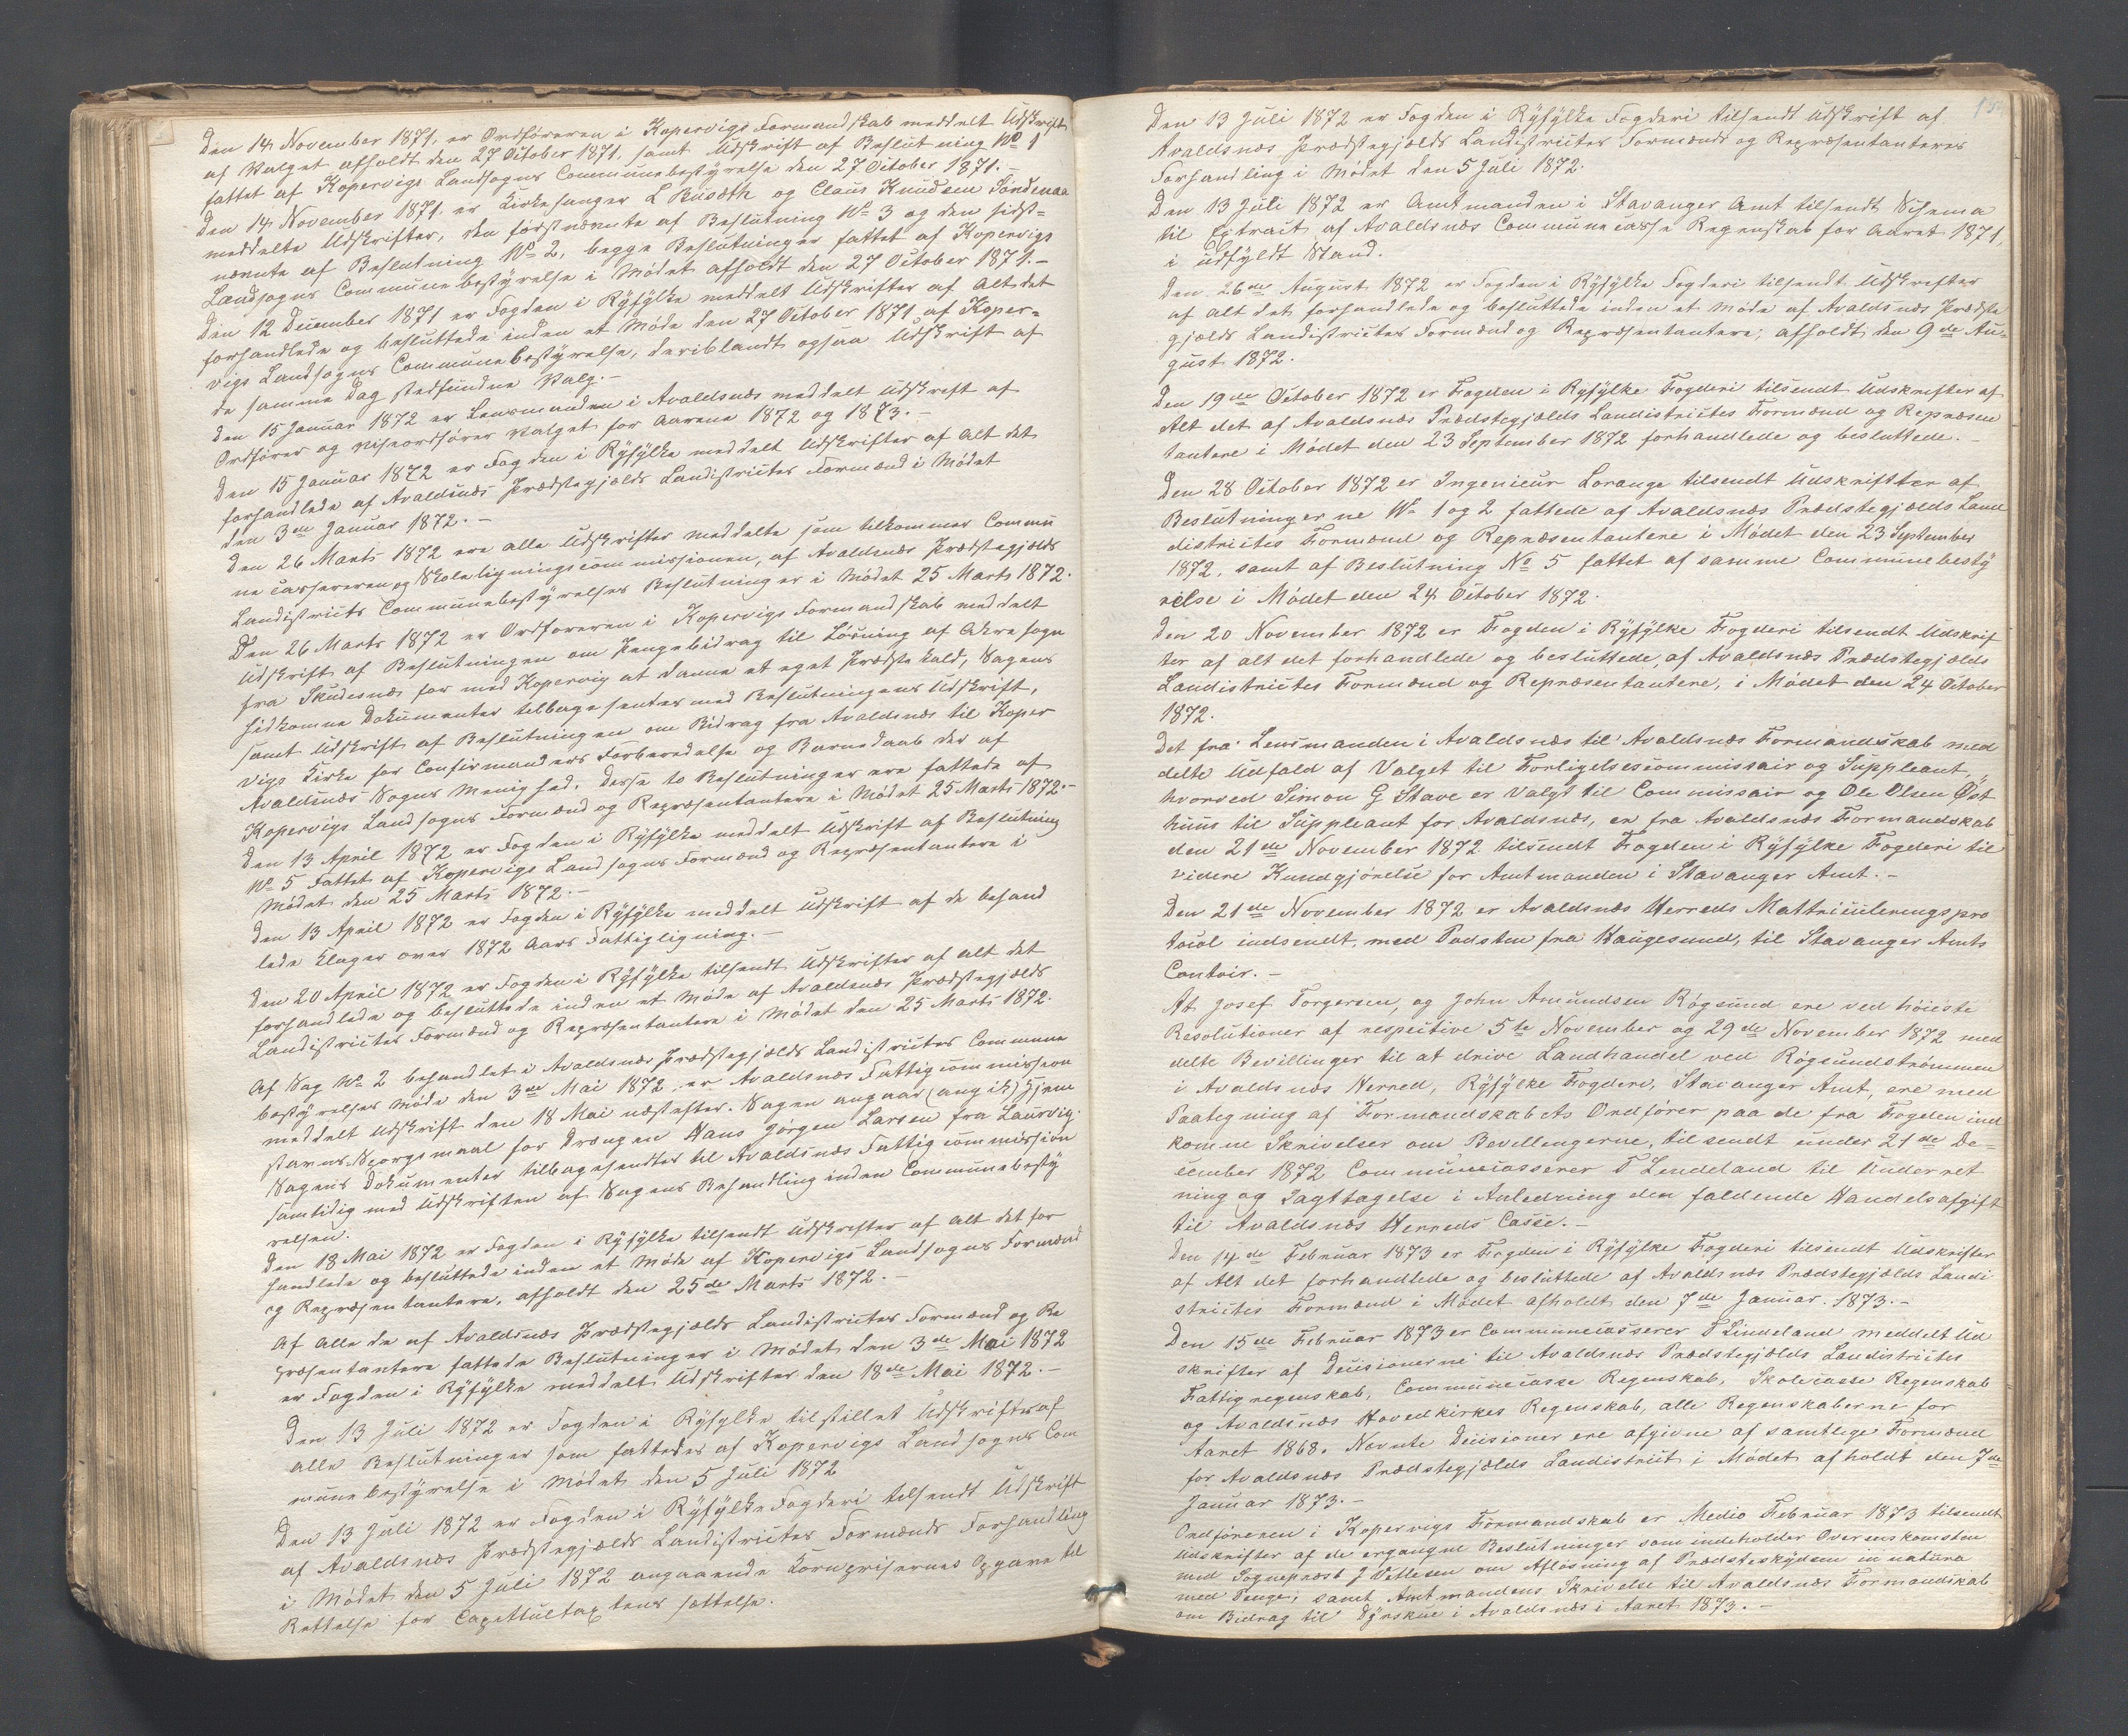 Den 14 November 1871, er Ordføreren i Kopervigs Formandskab meddelt Udskrift
af Valget afholdt den 27 October 1871, samt Udskrift af Beslutning No 1
fattet af Kopervigs Landsogns Communebestyrelse den 27 October 1871.-
Den 14 November 1871, er Kirkesanger L Busæth og Claus Knudsen Søndenaa
meddelte Udskrifter, den førstnævnte af Beslutning No 3 og den sidst=
nævnte af Beslutning No 2, begge Beslutninger fattet af Kopervigs
Landsogns Communebestyrelse i Mødet afholdt den 27 October 1871.-
Den 12 December 1871 er Fogden i Ryfylke meddelt Udskrifter af Alt det
forhandlede og besluttede inden et Møde den 27 October 1871 af Koper=
vigs Landsogns Communebestyrelse, deriblandt ogsaa Udskrift af
de samme Dag stedfundne Valg.-
Den 15 Januar 1872 er Lensmanden i Avaldsnæs meddelt Udskrift af
Ordfører og Viseordfører Valget for Aarene 1872 og 1873.-
Den 15 Januar 1872 er Fogden i Ryfylke meddelt Udskrifter af Alt det
forhandlede af Avaldsnæs Prædstegjælds Landistrictes Formænd i Mødet
den 3die Januar 1872.-
Den 26 Marts 1872 ere alle Udskrifter meddelte som tilkommer Commu
ne casseren og Skoleligningscommissionen, af Avaldsnæs Prædstegjælds
Landistricts Communebestyrelses Beslutninger i Mødet 25 Marts 1872.
Den 26 Marts 1872 er Ordføreren i Kopervigs Formandskab meddelt
Udskrift af Beslutningen om Pengebidrag til Løsning af Akre sogn
fra Skudesnæs for med Kopervig at danne et eget Prædste kald, Sagens
hidkomne Dokumenter tilbagesentes med Beslutningens Udskrift,
samt Udskrift af Beslutningen om Bidrag fra Avaldsnæs til Koper
vigs Kirke for Confirmanders Forberedelse og Barnedaab der af
Avaldsnæs Sogns Menighed. Desse to Beslutninger ere fattede af
Kopervigs Landsogns Formænd og Repræsentantere i Mødet 25 Marts 1872.-
Den 13 April 1872 er Fogden i Ryfylke meddelt Udskrift af Beslutning
No 5 Fattet af Kopervigs Landsogns Formænd og Repræsentantere i
Mødet den 25 Marts 1872.-
Den 13 April 1872 er Fogden i Ryfylke meddelt Udskrift af de behand
lede Klager over 1872 Aars Fattigligning.-
Den 20 April 1872 er Fogden i Ryfylke tilsendt Udskrifter af alt det
forhandlede og besluttede inden et Møde af Avaldsnæs Prædstegjælds
Landistrictes Formænd og Repræsentantere i Mødet den 25 Marts 1872.
Af Sag No 2 behandlet i Avaldsnæs Prædstegjælds Landistrictes Commune
bestyrelses Møde den 3de Mai 1872 er Avaldsnæs Fattigcommission
meddelt Udskrift den 18 Mai næstefter. Sagen angaar (angik) Hjem
stavns Spørgsmaal for Drengen Hans Jørgen Larsen fra Laurvig.
Sagens Dokumenter tilbagesendtes til Avaldsnæs Fattigcommission
samtidig med Udskriften af Sagens Behandling inden Communebesty
relsen.
Den 18 Mai 1872 er Fogden i Ryfylke tilsendt Udskrifter af alt det for
handlede og besluttede inden et Møde af Kopervigs Landsogns Formænd
og Repræsentantere, afholdt den 25de Marts 1872.-
Af Alle de af Avaldsnæs Prædstegjælds Landistrictes Formænd og Re
præsentantere fattede Beslutninger i Mødet den 3de Mai 1872
er Fogden i Ryfylke meddelt Udskrifter den 18de Mai 1872.-
Den 13 Juli 1872 er Fogden i Ryfylke tilstillet Udskrifter af
alle Beslutninger som fattedes af Kopervigs Landsogns Com
munebestyrelse i Mødet den 5 Juli 1872
Den 13 Juli 1872 er Fogden i Ryfylke Fogderi tilsendt Udskrift
af Avaldsnæs Prædstegjælds Landistrictes Formænds Forhandling
i Mødet den 5 Juli 1872 angaaende Kornprisernes Opgave til
Rettelse for Capittultaxtens sættelse.
Den 13 Juli 1872 er Fogden i Ryfylke Fogderi tilsendt Udskrift af
Avaldsnæs Prædstegjælds Landistrictes Formænds og Repræsentanteres
Forhandling i Mødet den 5 Juli 1872.
Den 13 Juli 1872 er Amtmanden i Stavanger Amt tilsendt Schema
til Extrait af Avaldsnæs Communecasse Regenskab for Aaret 1871,
i udfyldt Stand.
Den 26de August 1872 er Fogden i Ryfylke Fogderi tilsendt Udskrifter
af alt det forhandlede og besluttede inden et Møde af Avaldsnæs Prædste
gjælds Landistrictes Formænd og Repræsentantere, afholdt den 9de Au=
gust 1872.
Den 19de October 1872 er Fogden i Ryfylke Fogderi tilsendt Udskrifter af
Alt det af Avaldsnæs Prædstegjælds Landistrictes Formænd og Repræsen
tantere i Mødet den 23 September 1872 forhandlede og besluttede.-
Den 28 October 1872 er Ingenieur Lorange tilsendt Udskrifter af
Beslutningerne No 1 og 2 fattede af Avaldsnæs Prædstegjælds Land
districtes Formænd og Repræsentantere i Mødet den 23 September
1872, samt af Beslutning No 5 fattet af samme Communebesty
relse i Mødet den 24 October 1872.
Den 20 November 1872 er Fogden i Ryfylke Fogderi tilsendt Udskrif
ter af alt det forhandlede og besluttede, af Avaldsnæs Prædstegjælds
Landistrictes Formænd og Repræsentantere, i Mødet den 24 October
1872.
Det fra Lensmanden i Avaldsnæs til Avaldsnæs Formandskab med
delte Udfald af Valget til Forligelsescommissair og Suppleant,
hvorved Simon G Stave er Valgt til Commissair og Ole Olsen Øst
huus til Suppleant for Avaldsnæs, er fra Avaldsnæs Formandskab
den 21de November 1872 tilsendt Fogden i Ryfylke Fogderi til
videre Kundgjørelse for Amtmanden i Stavanger Amt.-
Den 21de November 1872 er Avaldsnæs Herreds Mattriculeringspro
tocol indsendt, med Posten fra Haugesund, til Stavanger Amts
Contoir.-
At Josef Torgersen, og John Amundsen Røgsund ere ved høieste
Resolutioner af respective 5te November og 29de November 1872 med
delte Bevillinger til at drive Landhandel ved Røgsundstrømmen
i Avaldsnæs Herred, Ryfylke Fogderi, Stavanger Amt, ere med
Paategning af Formandskabets Ordfører paa de fra Fogden ind
komne Skrivelser om Bevillingerne, tilsendt under 21de De=
cember 1872 Communecasserer T Lindeland til Underret
ning og Iagttagelse i Anledning den faldende Handelsafgift
til Avaldsnæs Herreds Casse.-
Den 14de Februar 1873 er Fogden i Ryfylke Fogderi tilsendt Udskrifter
af Alt det forhandlede og besluttede af Avaldsnæs Prædstegjælds Landi
strictes Formænd i Mødet afholdt den 7de Januar 1873.-
Den 15de Februar 1873 er Communecasserer T Lindeland meddelt Ud
skrifter af Decisionerne til Avaldsnæs Prædstegjælds Landistrictes
Fattigregenskab, Communecasse Regenskab, Skolecasse Regenskab
og Avaldsnæs Hovedkirkes Regenskab, alle Regenskaberne for
Aaret 1868. Nevnte Decisioner ere afgivne af samtlige Formænd
for Avaldsnæs Prædstegjælds Landistrict i Mødet afholdt den 7de
Januar 1873.-
Ordføreren i Kopervigs Formandskab er Medio Februar 1873 tilsendt
Udskrifter af de ergangne Beslutninger som indeholder Overenskomsten
med Sogneprest J Vetlesen om Afløsning af Prædsteskydsen in natura
med Penge, samt Amtmandens Skrivelse til Avaldsnæs Formandskab
om Bidrag til Dyrskue i Avaldsnæs i Aaret 1873.-